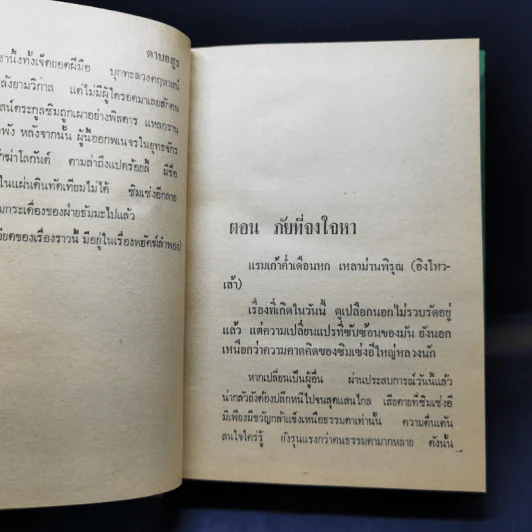 ดาบอสูร
ชานั่งทั้งเจ็ดยอดฝีมือ บุกทะลวงคฤหาสน์
ลังยามวิกาล แต่ไม่มีผู้ใดรอดมาเลยสักคน
สน์ตระกูลซิมถูกเผาอย่างพิสดาร แหลกราน
พัง หลังจากนั้น ผู้นี้ออกพเนจรในยุทธจักร
ฆ่าโลกันต์ ตามล่าถึงแปดร้อยลี้ มีชื่อ
ในแผ่นดินทัดเทียมไม่ได้ ซิมเซ่งอีกลาย
มกระเดื่องของฝ่ายธัมมะไปแล้ว
อียดของเรื่องราวนี้ มีอยู่ในเรื่องพยัคฆ์ลำพอง)
ตอน ภัยที่จงใจหา
แรมเก้าค่ำเดือนหก เหลาม่านพิรุณ (อิงโหว-
เล้า)
เรื่องที่เกิดในวันนี้ ดูเปลือกนอกไม่รวบรัดอยู่
แล้ว แต่ความเปลี่ยนแปรที่ซับซ้อนของมัน ยังนอก
เหนือกว่าความคาดคิดของซิมเซ่งอีใหญ่หลวงนัก
หากเปลี่ยนเป็นผู้อื่น ผ่านประสบการณ์วันนี้แล้ว
น่ากลัวยังต้องปลีกหนีไปจนสุดแสนไกล เสียดายที่ซิมเซ่งอี
มิเพียงมีขวัญกล้าแข็งเหนือธรรมดาเท่านั้น ความตื่นเต้น
สนใจใคร่รู้ ยังรุนแรงกว่าคนธรรมดามากหลาย ดังนั้น